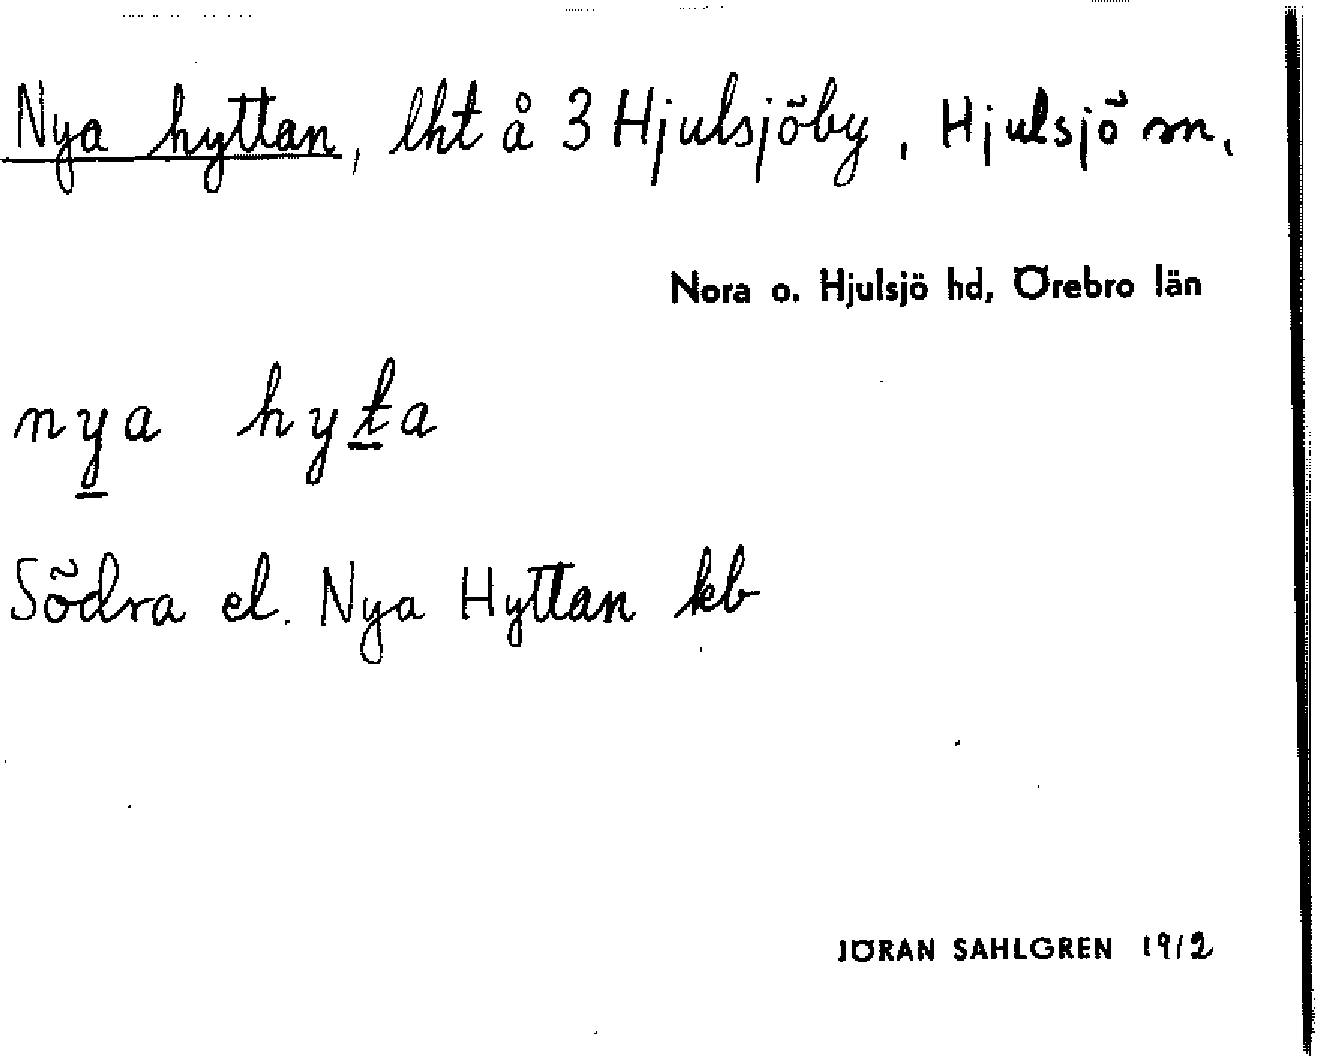 Nya hyttan, lht å 3 Hjulsjöby, Hjulsjö sn,
Nora o. Hjulsjö hd, Örebro län
nya hyta
Södra el. Nya Hyttan kb
JÖRAN SAHLGREN 1912